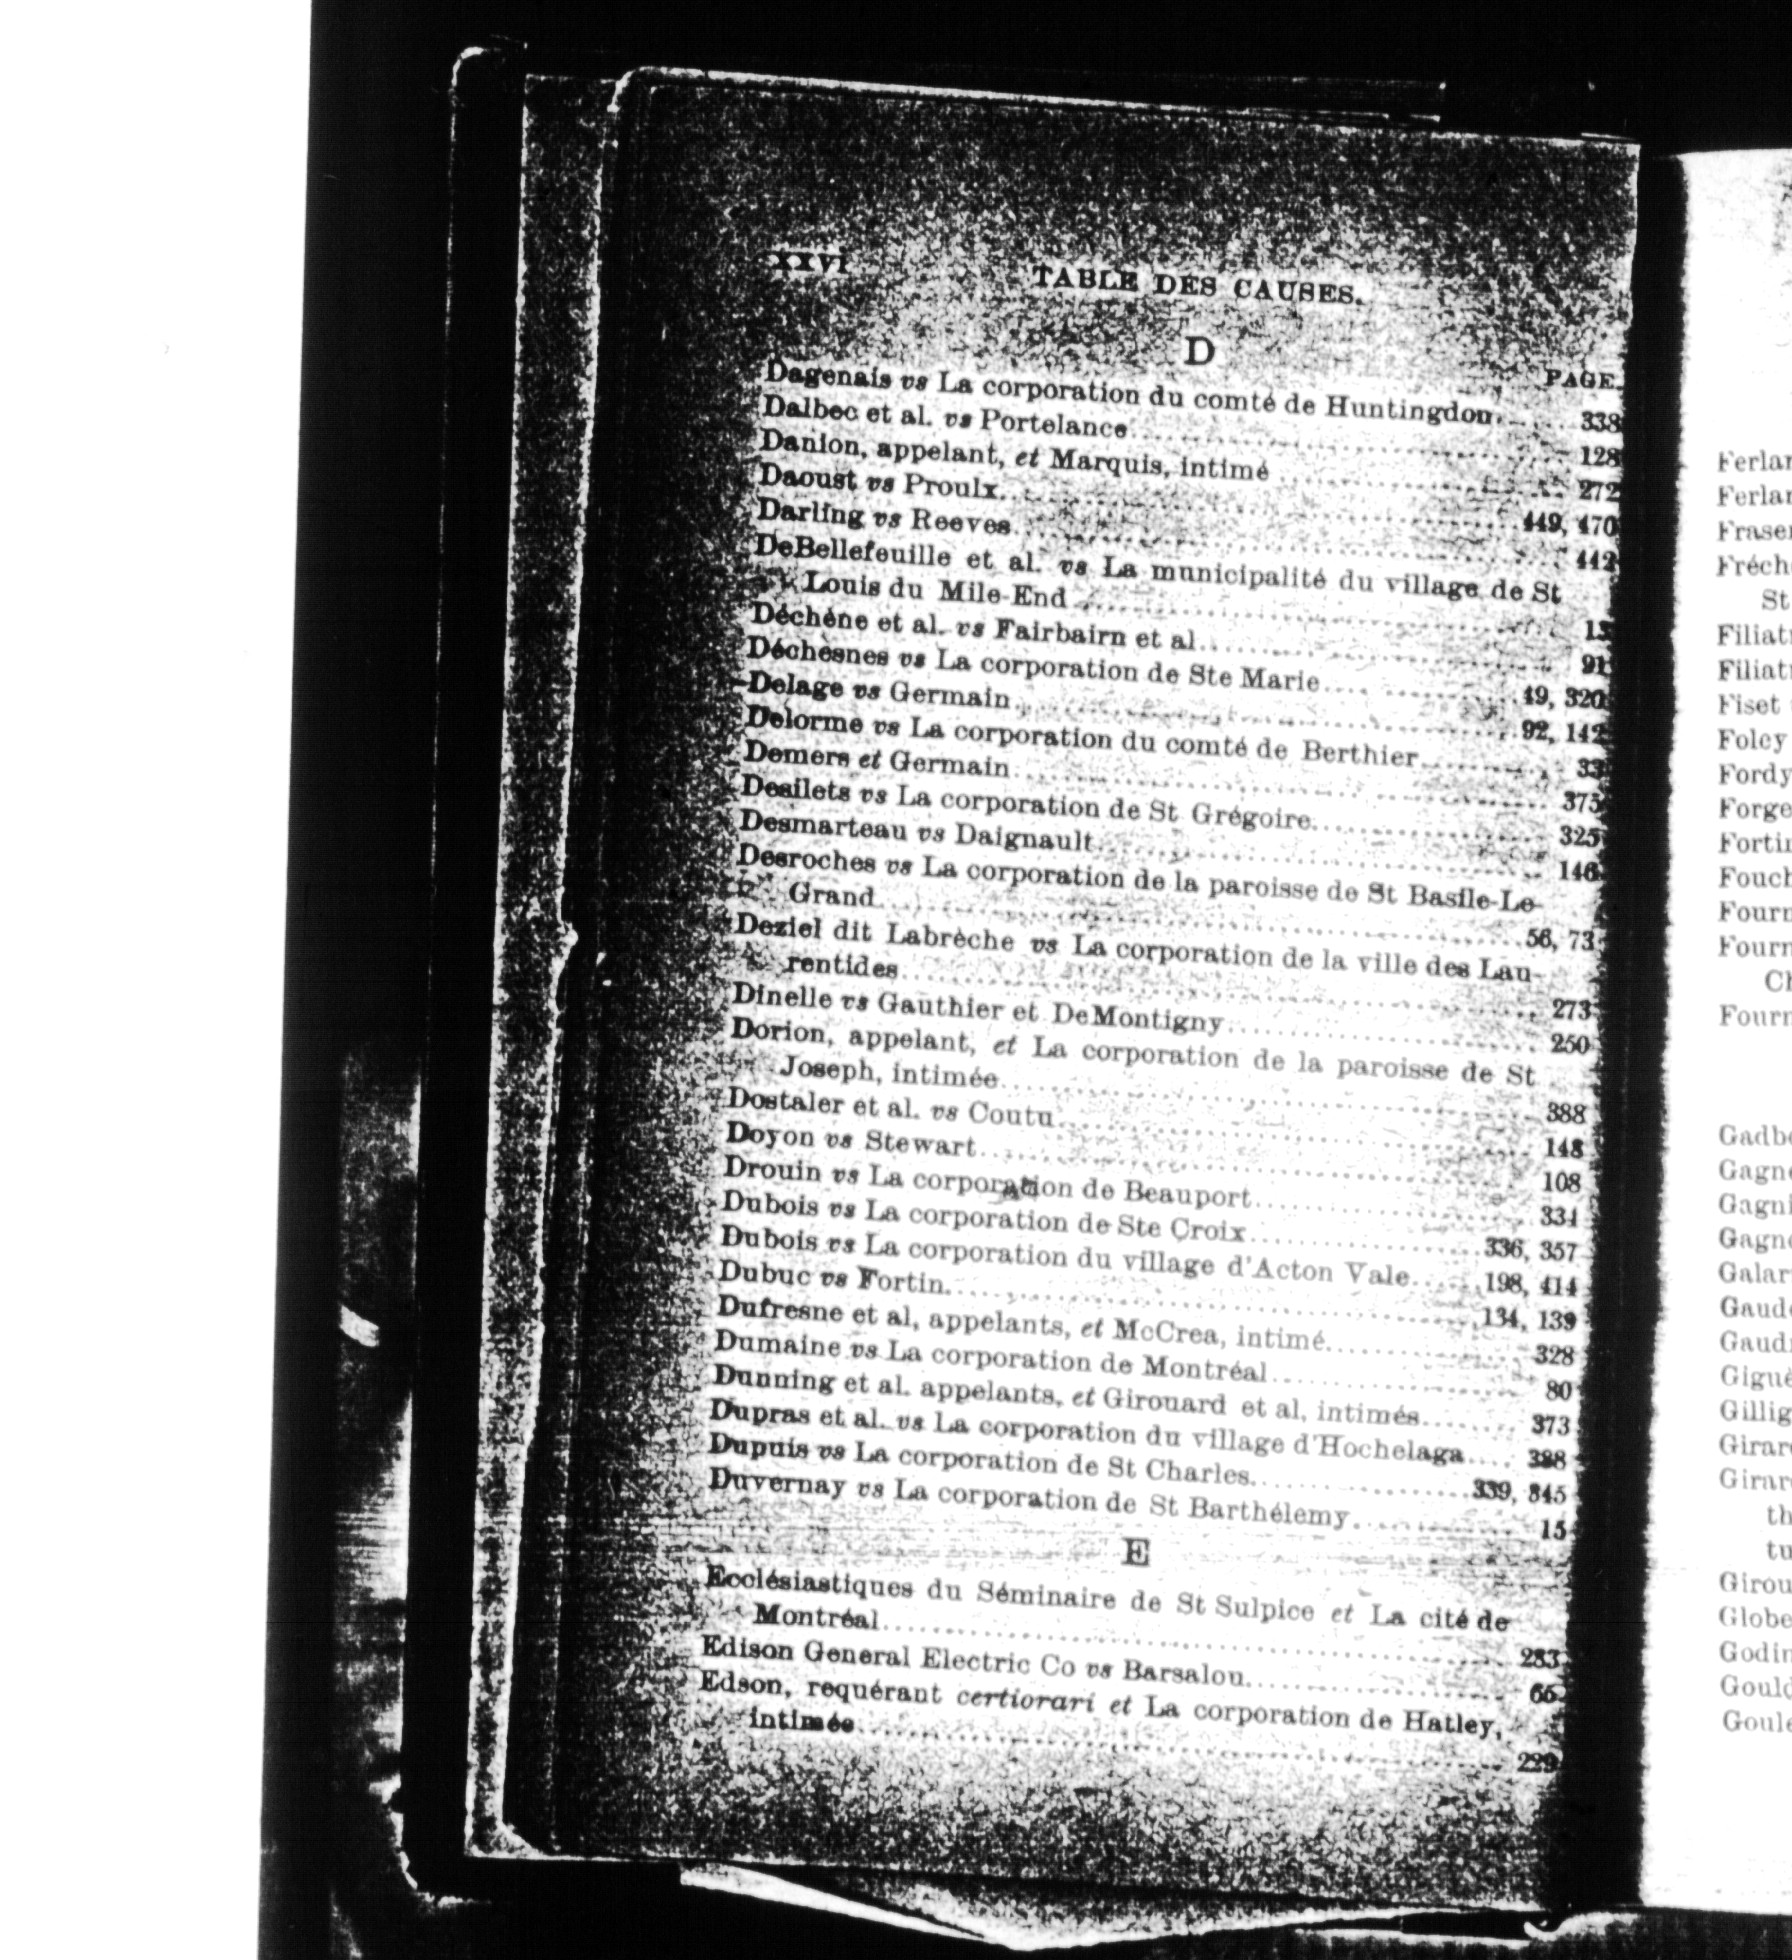 xxvi TABLE DES CAUSES.
D
PAGE.
Dagenais vs La corporation du comté de Huntingdon..... 338
Dalbec et al. vs Portelance..... 128
Danion, appelant, et Marquis, intimé..... 272
Daoust vs Proulx..... 449, 470
Darling vs Reeves..... 442
DeBellefeuille et al. vs La municipalité du village de St
Louis du Mile-End..... 13
Déchène et al. vs Fairbairn et al..... 91
Déchèsnes vs La corporation de Ste Marie..... 49, 320
Delage vs Germain..... 92, 142
Delorme vs La corporation du comté de Berthier..... 33
Demers et Germain..... 375
Desilets vs La corporation de St Grégoire..... 325
Desmarteau vs Daignault..... 146
Desroches vs La corporation de la paroisse de St Basile-Le-
Grand..... 56, 73
Deziel dit Labrèche vs La corporation de la ville des Lau-
rentides..... 273
Dinelle vs Gauthier et DeMontigny..... 250
Dorion, appelant, et La corporation de la paroisse de St
Joseph, intimée..... 388
Dostaler et al. vs Coutu..... 148
Doyon vs Stewart..... 108
Drouin vs La corporation de Beauport..... 334
Dubois vs La corporation de Ste Croix..... 336, 357
Dubois vs La corporation du village d'Acton Vale..... 198, 414
Dubuc vs Fortin..... 134, 139
Dufresne et al, appelants, et McCrea, intimé..... 328
Dumaine vs La corporation de Montréal..... 80
Dunning et al. appelants, et Girouard et al, intimés..... 373
Dupras et al. vs La corporation du village d'Hochelaga..... 388
Dupuis vs La corporation de St Charles..... 339, 345
Duvernay vs La corporation de St Barthélemy..... 15
E
Ecclésiastiques du Séminaire de St Sulpice et La cité de
Montréal..... 283
Edison General Electric Co vs Barsalou..... 66
Edson, requérant certiorari et La corporation de Hatley,
intimée..... 229
Ferlan
Ferlan
Fraser
Fréche
St
Filiatr
Filiatr
Fiset
Foley
Fordy
Forge
Fortin
Fouch
Fourn
Fourn
Ch
Fourn
Gadbo
Gagne
Gagni
Gagno
Galar
Gaude
Gaudr
Giguè
Gillig
Girard
Girard
th
tu
Girou
Globe
Godin
Gould
Goule